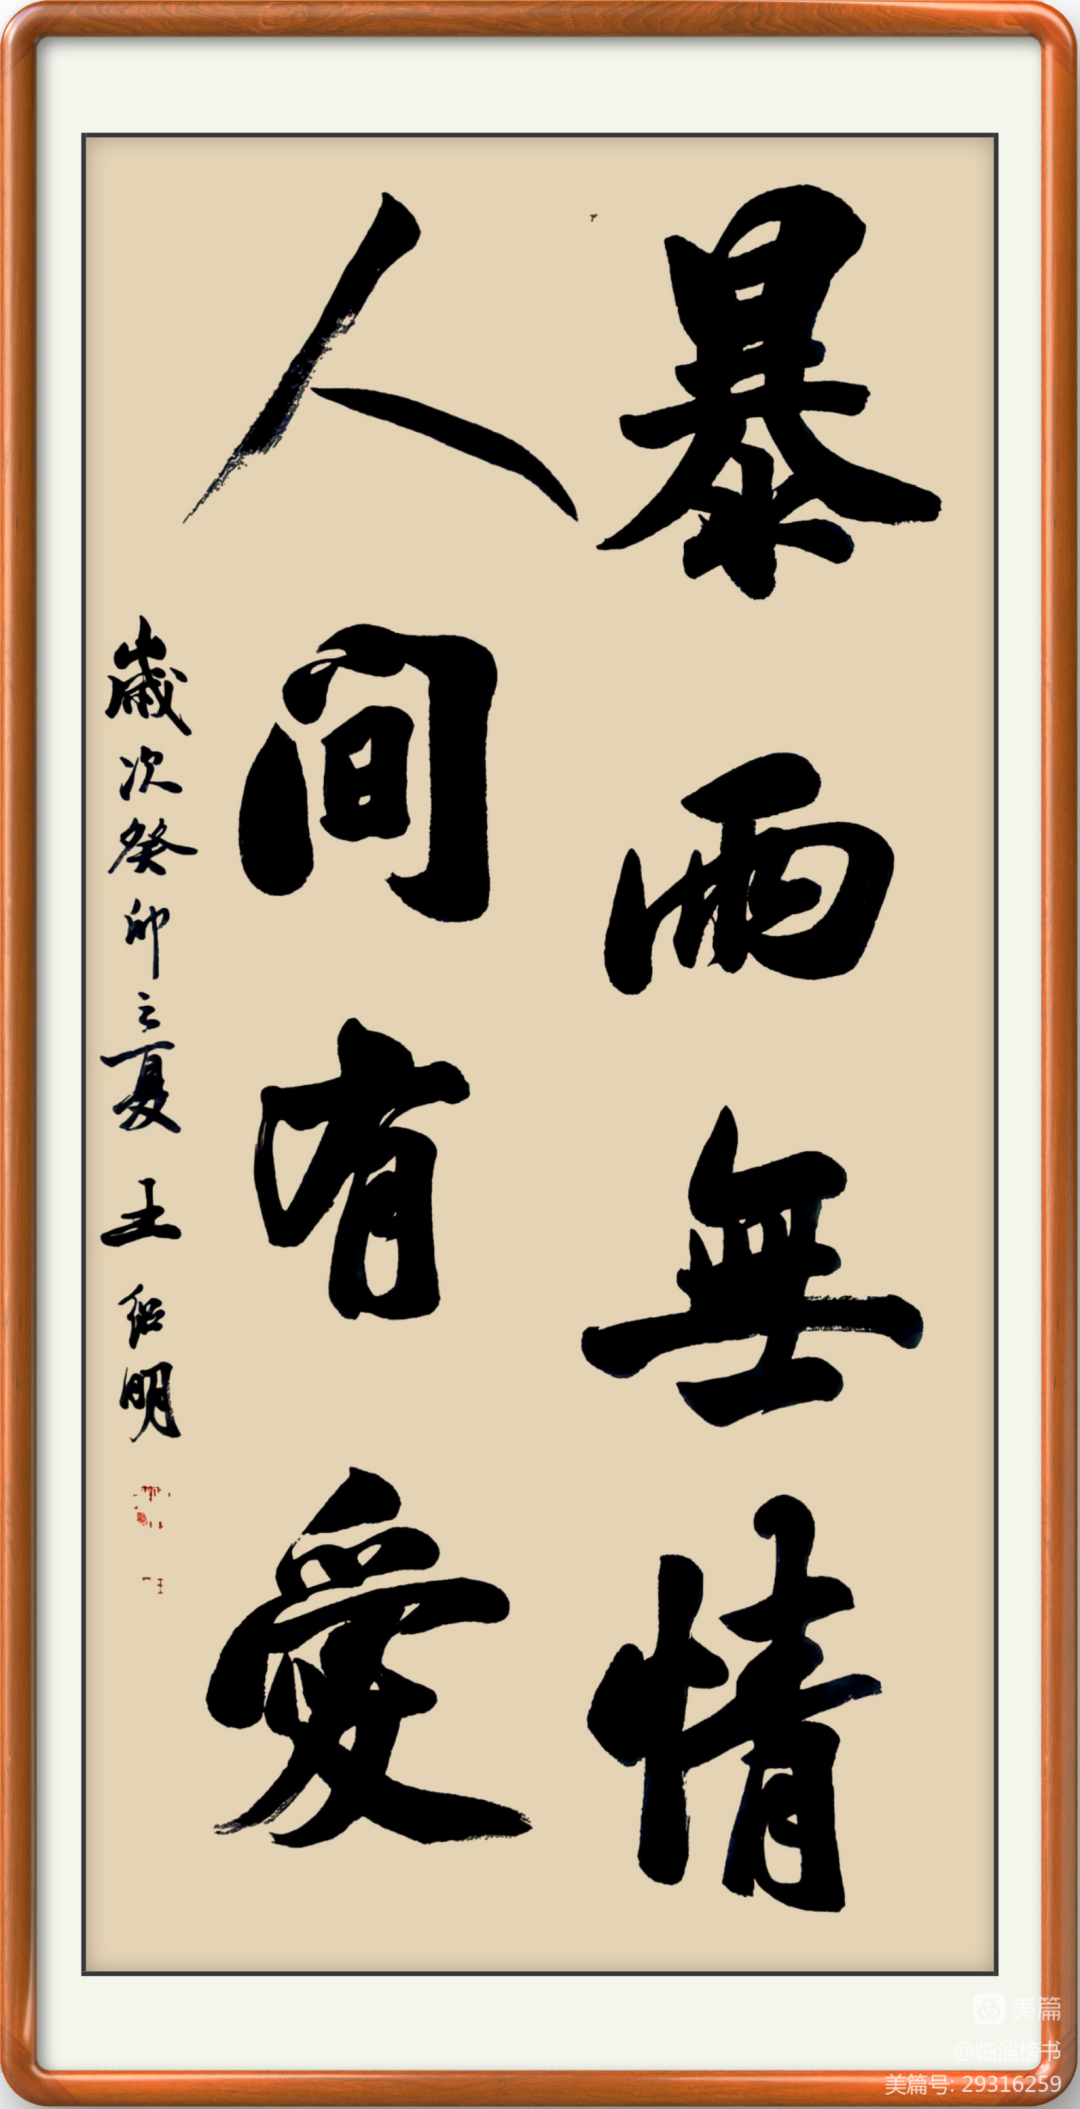 暴雨無情
人間有愛
歲次癸卯之夏 王紹明
美篇
@临淄榜书
美篇号: 29316259